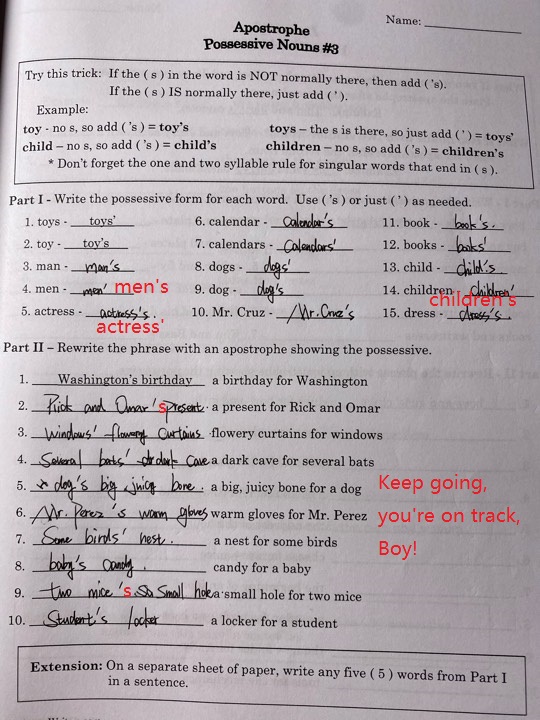 Name:
Apostrophe
Possessive Nouns #3
Try this trick: If the ( s ) in the word is NOT normally there, then add ( 's).
If the ( s ) IS normally there, just add ( ' ).
Example:
toy - no s, so add ( 's ) = toy's toys – the s is there, so just add ( ' ) = toys'
child – no s, so add ( 's ) = child's children – no s, so add ( 's ) = children's
* Don't forget the one and two syllable rule for singular words that end in ( s ).
Part I - Write the possessive form for each word. Use ( 's ) or just ( ' ) as needed.
1. toys - toys' 6. calendar - Calendar's 11. book - book's.
2. toy - toy's 7. calendars - Calendars' 12. books - books'
3. man - man's 8. dogs - dogs' 13. child - Child's
4. men - men' men's 9. dog - dog's 14. children Children' children's
5. actress - actress's. actress' 10. Mr. Cruz - Mr. Cruz's 15. dress - dress's.
Part II – Rewrite the phrase with an apostrophe showing the possessive.
1. Washington's birthday a birthday for Washington
2. Rick and Omar's present. a present for Rick and Omar
3. Windows' flowery curtains flowery curtains for windows
4. Several bats' dark cave a dark cave for several bats
5. dog's big, juicy bone. a big, juicy bone for a dog
6. Mr. Perez's warm gloves warm gloves for Mr. Perez
7. Some birds' nest. a nest for some birds
8. baby's candy. candy for a baby
9. two mice's. small hole a small hole for two mice
10. Student's locker a locker for a student
Keep going,
you're on track,
Boy!
Extension: On a separate sheet of paper, write any five ( 5 ) words from Part I
in a sentence.